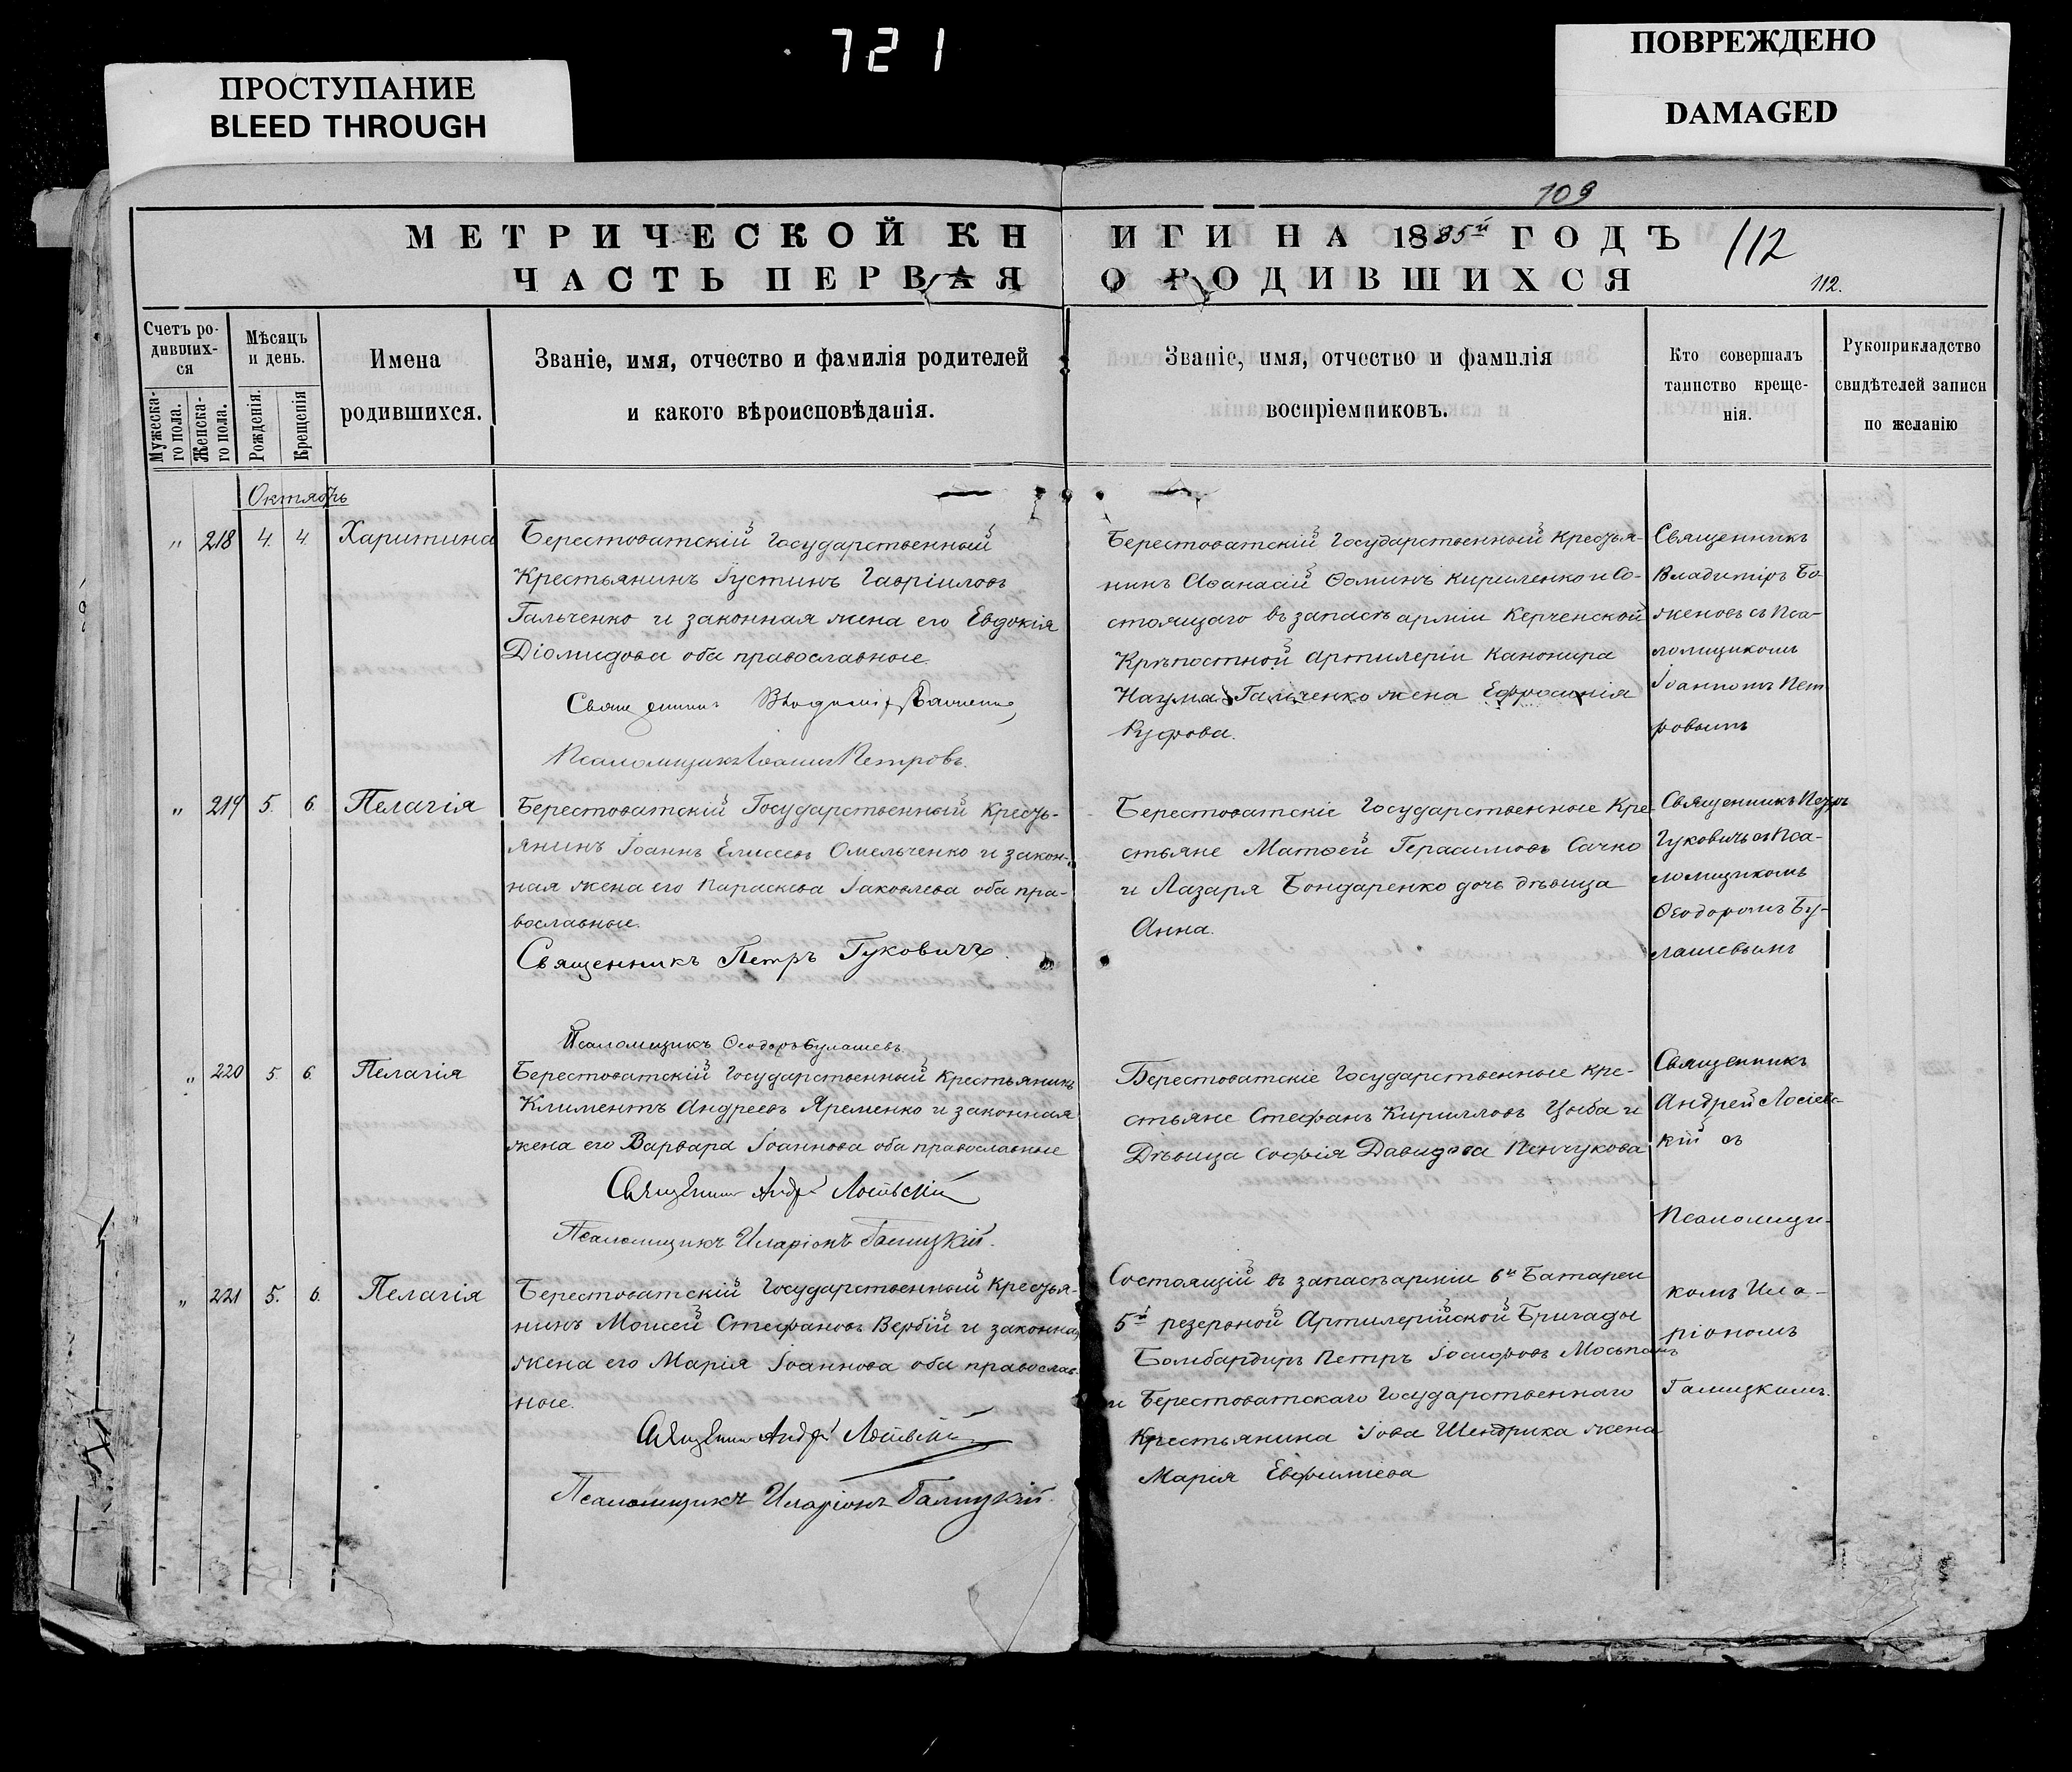 721
ПРОСТУПАНИЕ
BLEED THROUGH
ПОВРЕЖДЕНО
DAMAGED
109
МЕТРИЧЕСКОЙ КНИГИ НА 1885й ГОДЪ
112
ЧАСТЬ ПЕРВАЯ О РОДИВШИХСЯ
112.
Счетъ ро-
дивших-
ся
Мужеска-
го пола.
Женска-
го пола.
Мѣсяцъ
и день.
Рожденія.
Крещенія
Имена
родившихся.
Званіе, имя, отчество и фамилія родителей
и какого вѣроисповѣданія.
Званіе, имя, отчество и фамилія
воспріемниковъ.
Кто совершалъ
таинство креще-
нія.
Рукоприкладство
свидѣтелей записи
по желанію
Октябрь
" 218 4. 4. Харитина
Берестоватскій Государственный
Крестьянинъ Іустинъ Гавріиловъ
Гальченко и законная жена его Евдокія
Діомидова оба православные.
Псаломщикъ Іоаннъ Петровъ.
Берестоватскій Государственный Крестья-
нинъ Аѳанасій Ѳоминъ Кириленко и Со-
стоящаго въ запасѣ арміи Керченской
Крѣпостной Артилеріи Канонира
Наума Гальченко жена Ефросинія
Руфова.
Священникъ
Владиміръ Ба
женовъ съ Пса-
ломщикомъ
Іоанномъ Пет
ровымъ
" 219 5. 6. Пелагія
Берестоватскій Государственный Кресть-
янинъ Іоаннъ Елисеевъ Омельченко и закон-
ная жена его Параскева Іаковлева оба пра-
вославные.
Священникъ Петръ Гуковичъ.
Псаломщикъ Ѳеодоръ Булашевъ
Берестоватскіе Государственные Кре-
стьяне Матѳей Герасимовъ Сачко
и Лазаря Бондаренко дочь дѣвица
Анна.
Священникъ Петръ
Гуковичъ съ Пса-
ломщикомъ
Ѳеодоромъ Бу-
лашевымъ
" 220 5. 6. Пелагія
Берестоватскій Государственный Крестьянинъ
Климентъ Андреевъ Яременко и законная
жена его Варвара Іоаннова оба православные
Священникъ Андрей Лосіевскій
Псаломщикъ Иларіонъ Галицкій.
Берестоватскіе Государственные Кре-
стьяне Стефанъ Кирилловъ Цыба и
Дѣвица Софія Давидова Пенчукова
Священникъ
Андрей Лосіевс-
кій съ
Псаломщи-
комъ Ила-
ріономъ
Галицкимъ.
" 221 5. 6. Пелагія
Берестоватскій Государственный Крестья-
нинъ Моисей Стефановъ Вербій и законная
жена его Марія Іоаннова оба православ-
ные.
Священникъ Андрей Лосіевскій
Псаломщикъ Иларіонъ Галицкій.
Состоящій въ запасѣ арміи 6й Батареи
5й резервной Артилерійской Бригады
Бомбардиръ Петръ Іосифовъ
и Берестоватскаго Государственнаго
Крестьянина Іова Шендрика жена
Марія Евфиміева